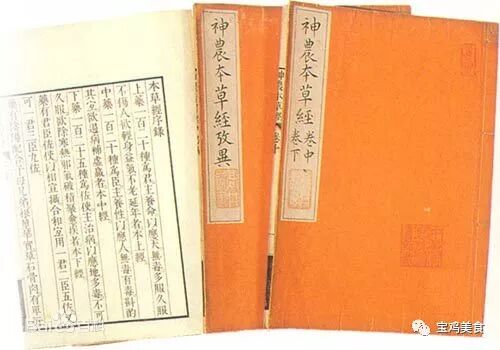 神農本草經卷中
卷下
神農本草經攷異
本草經序錄
上藥一百二十種爲君主養命以應天無毒多服久服
不傷人欲輕身益氣不老延年者本上經
中藥一百二十種爲臣主養性以應人無毒有毒斟酌
其宜欲遏病補虛羸者本中經
下藥一百二十五種爲佐使主治病以應地多毒不可
久服欲除寒熱邪氣破積聚愈疾者本下經
藥有君臣佐使以相宣攝合和宜用一君二臣五佐又
可一君三臣九佐
藥有陰陽配合子母兄弟根莖華實草石骨肉有單
宝鸡美食